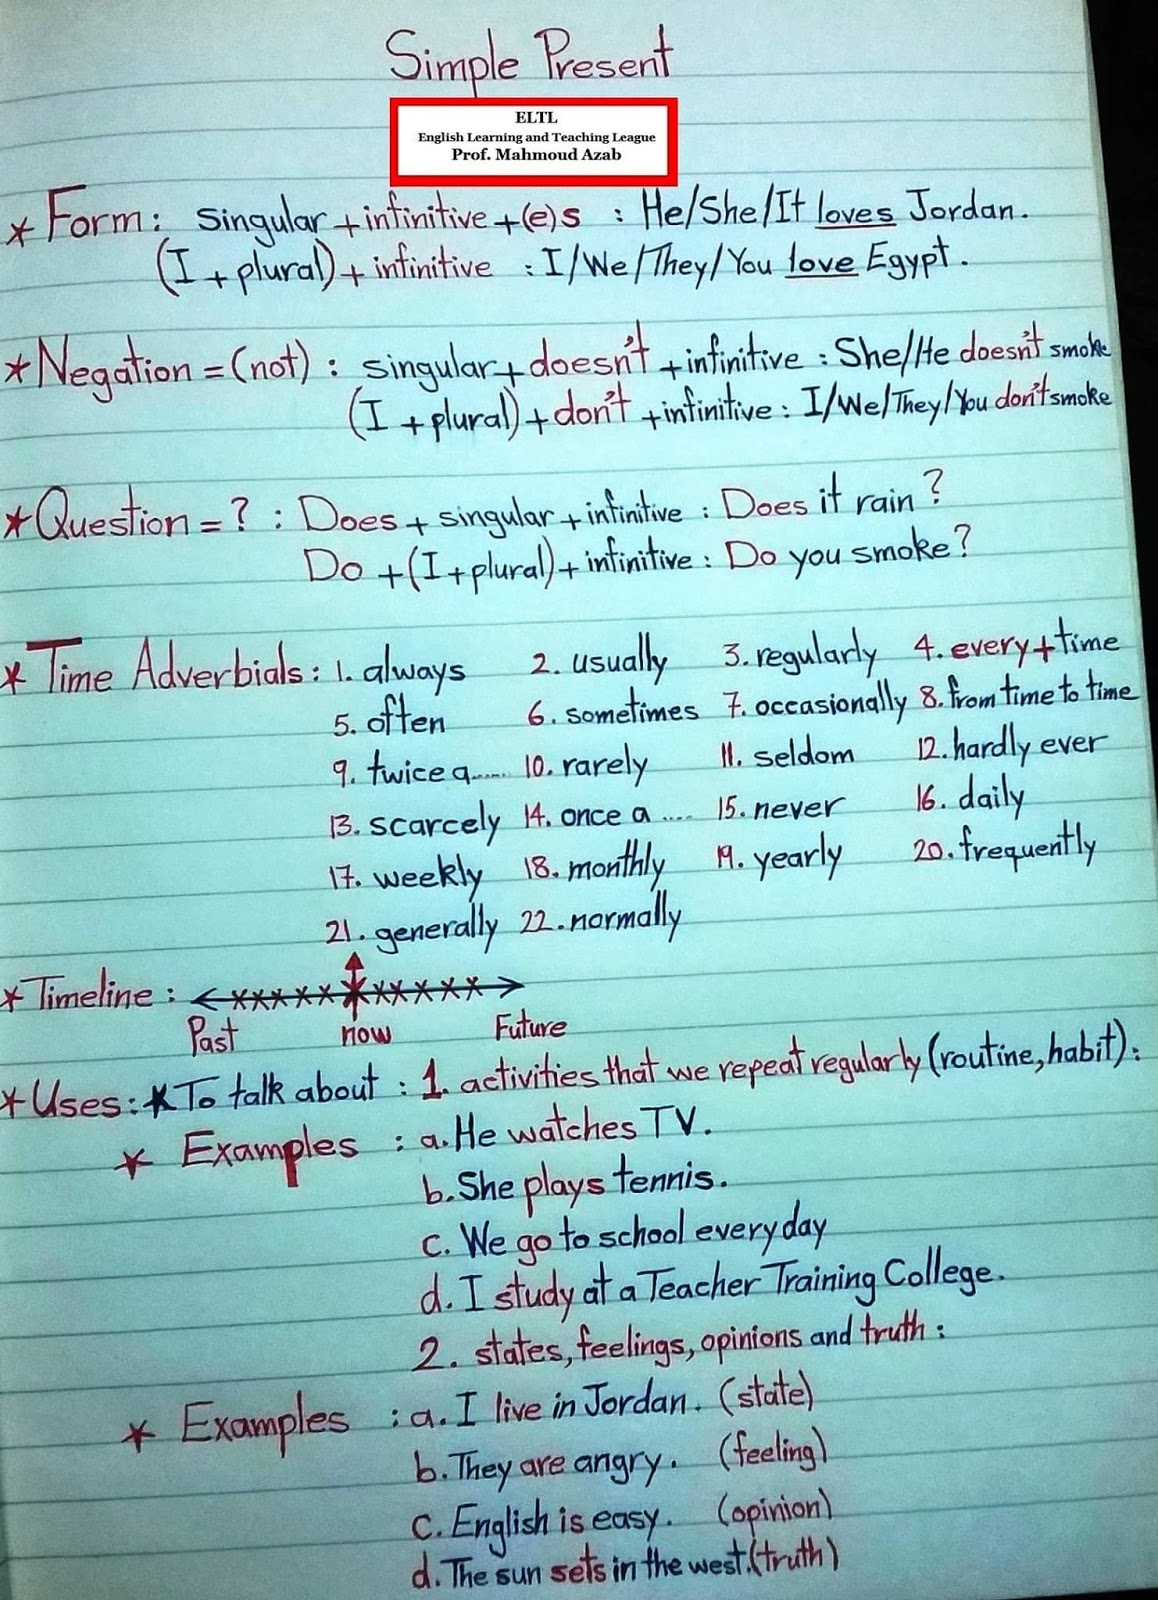 Simple Present
ELTL
English Learning and Teaching League
Prof. Mahmoud Azab
* Form: singular + infinitive + (e)s : He/She/It loves Jordan.
(I + plural) + infinitive : I/We/They/You love Egypt.
* Negation = (not) : singular + doesn't + infinitive : She/He doesn't smoke
(I + plural) + don't + infinitive : I/We/They/You don't smoke
* Question = ? : Does + singular + infinitive : Does it rain ?
Do + (I + plural) + infinitive : Do you smoke ?
* Time Adverbials : 1. always 2. usually 3. regularly 4. every + time
5. often 6. sometimes 7. occasionally 8. from time to time
9. twice a ...... 10. rarely 11. seldom 12. hardly ever
13. scarcely 14. once a .... 15. never 16. daily
17. weekly 18. monthly 19. yearly 20. frequently
21. generally 22. normally
* Timeline :
Past now Future
* Uses : * To talk about : 1. activities that we repeat regularly (routine, habit) :
* Examples : a. He watches TV.
b. She plays tennis.
c. We go to school everyday
d. I study at a Teacher Training College.
2. states, feelings, opinions and truth :
* Examples : a. I live in Jordan. (state)
b. They are angry. (feeling)
c. English is easy. (opinion)
d. The sun sets in the west. (truth)